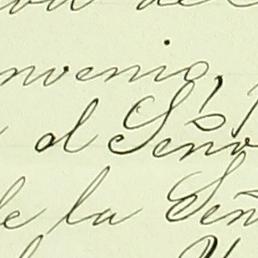 nvenio,
el Seño
de la Señ